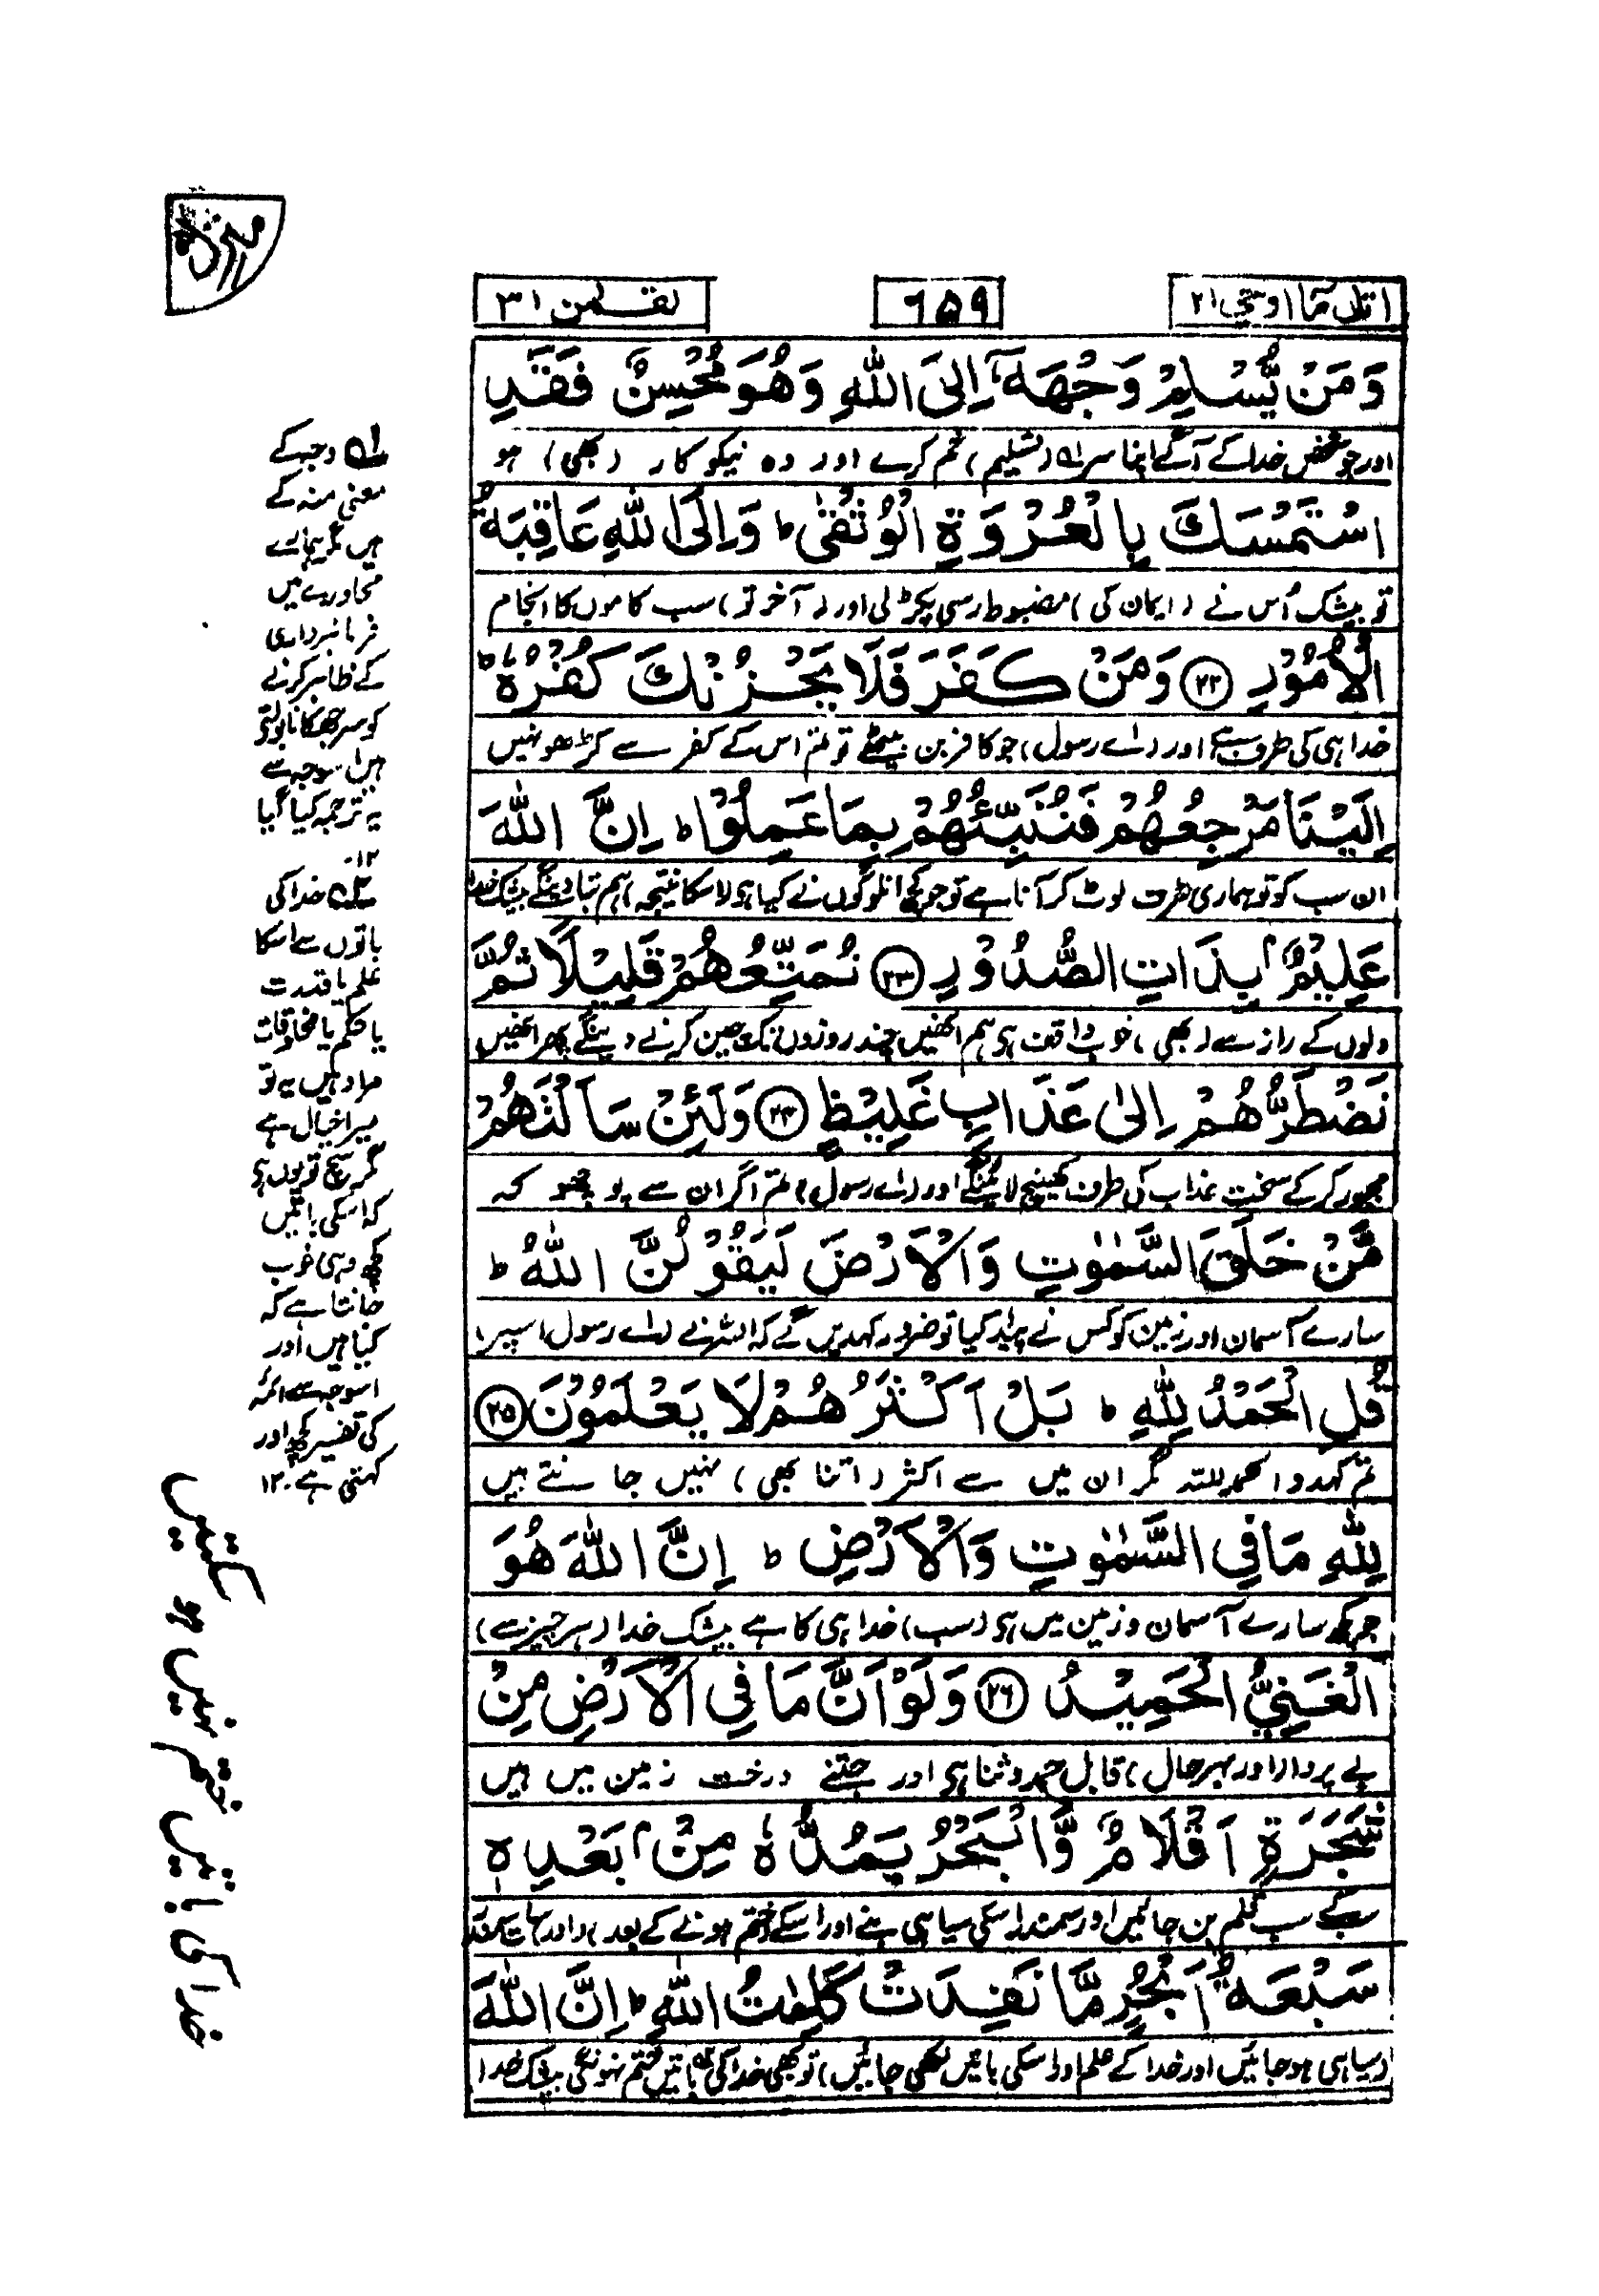 اتل ما اوحی ۲۱
۶۵۹
لقمٰن ۳۱
وَمَنْ يُّسْلِمْ وَجْهَهٗۤ اِلَى اللّٰهِ وَهُوَ مُحْسِنٌ فَقَدِ
اور جو شخص خدا کے آگے اپنا سر ۵۱ (تسلیم) خم کرے اور وہ نیکوکار (بھی) ہو
اسْتَمْسَكَ بِالْعُرْوَةِ الْوُثْقٰى ؕ وَاِلَى اللّٰهِ عَاقِبَةُ
تو بیشک اُس نے (ایمان کی) مضبوط رسی پکڑ لی اور (آخر تو) سب کاموں کا انجام
الْاُمُوْرِ ۲۲ وَمَنْ كَفَرَ فَلَا يَحْزُنْكَ كُفْرُهٗ ؕ
خدا ہی کی طرف ہے اور (اے رسول) جو کافر بن بیٹھے تو تم اس کے کفر سے کڑھو نہیں
اِلَيْنَا مَرْجِعُهُمْ فَنُنَبِّئُهُمْ بِمَا عَمِلُوْا ؕ اِنَّ اللّٰهَ
ان سب کو تو ہماری طرف لوٹ کر آنا ہے تو جو کچھ ان لوگوں نے کیا ہو (اسکا نتیجہ) ہم بتا دینگے بیشک خدا
عَلِيْمٌۢ بِذَاتِ الصُّدُوْرِ ۲۳ نُمَتِّعُهُمْ قَلِيْلًا ثُمَّ
دلوں کے راز سے (بھی) خوب واقف ہی ہم انھیں چند روزوں تک چین کرنے دینگے پھر انھیں
نَضْطَرُّهُمْ اِلٰى عَذَابٍ غَلِيْظٍ ۲۴ وَلَئِنْ سَاَلْتَهُمْ
مجبور کر کے سخت عذاب کی طرف کھینچ لائینگے اور (اے رسول) تم اگر ان سے پوچھو کہ
مَّنْ خَلَقَ السَّمٰوٰتِ وَالْاَرْضَ لَيَقُوْلُنَّ اللّٰهُ ؕ
سارے آسمان اور زمین کو کس نے پیدا کیا تو ضرور کہدیں گے کہ اللہ نے (اے رسول) اسپر
قُلِ الْحَمْدُ لِلّٰهِ ؕ بَلْ اَكْثَرُهُمْ لَا يَعْلَمُوْنَ ۲۵
تم کہدو الحمد للہ مگر ان میں سے اکثر (اتنا بھی) نہیں جانتے ہیں
لِلّٰهِ مَا فِى السَّمٰوٰتِ وَالْاَرْضِ ؕ اِنَّ اللّٰهَ هُوَ
جو کچھ سارے آسمان و زمین میں ہی (سب) خدا ہی کا ہے بیشک خدا (ہر چیز سے)
الْغَنِىُّ الْحَمِيْدُ ۲۶ وَلَوْ اَنَّ مَا فِى الْاَرْضِ مِنْ
بے پروا (اور بہرحال) قابل حمد و ثنا ہی اور جتنے درخت زمین میں ہیں
شَجَرَةٍ اَقْلَامٌ وَّالْبَحْرُ يَمُدُّهٗ مِنْۢ بَعْدِهٖ
سب کے سب قلم بن جائیں اور سمندر اسکی سیاہی بنے اور اسکے ختم ہونے کے بعد (اور) سات سمندر
سَبْعَةُ اَبْحُرٍ مَّا نَفِدَتْ كَلِمٰتُ اللّٰهِ ؕ اِنَّ اللّٰهَ
(سیاہی ہو جائیں اور خدا کے علم اور اسکی باتیں لکھی جائیں) تو بھی خدا کی باتیں ختم نہونگی بیشک خدا
۵۱ وجہ کے
معنی منہ کے
ہیں مگر ہمارے
محاورے میں
فرمانبرداری
کے ظاہر کرنے
کو سر جھکانا بولتے
ہیں اسوجہ سے
یہ ترجمہ کیا گیا
۱۲۔
۵۲ خدا کی
باتوں سے اسکا
علم یا قدرت
یا حکم یا مخلوقات
مراد ہیں یہ تو
میرا خیال ہے
مگر سچ تو یوں ہی
کہ اسکی باتیں
کچھ وہی خوب
جانتا ہے کہ
کیا ہیں اور
اسوجہ سے ائمہ
کی تفسیر کچھ اور
کہتی ہے۔ ۱۲
خدا کی باتیں ختم نہیں ہو سکتیں